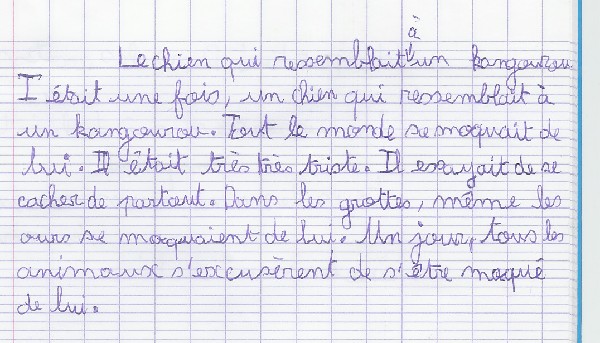 Le chien qui ressemblait à un kangourou
I était une fois, un chien qui ressemblait à
un kangourou. Tout le monde se moquait de
lui. Il était très très triste. Il essayait de se
cacher de partout. Dans les grottes, même les
ours se moquaient de lui. Un jour, tous les
animaux s'excusèrent de s'être moqué
de lui.